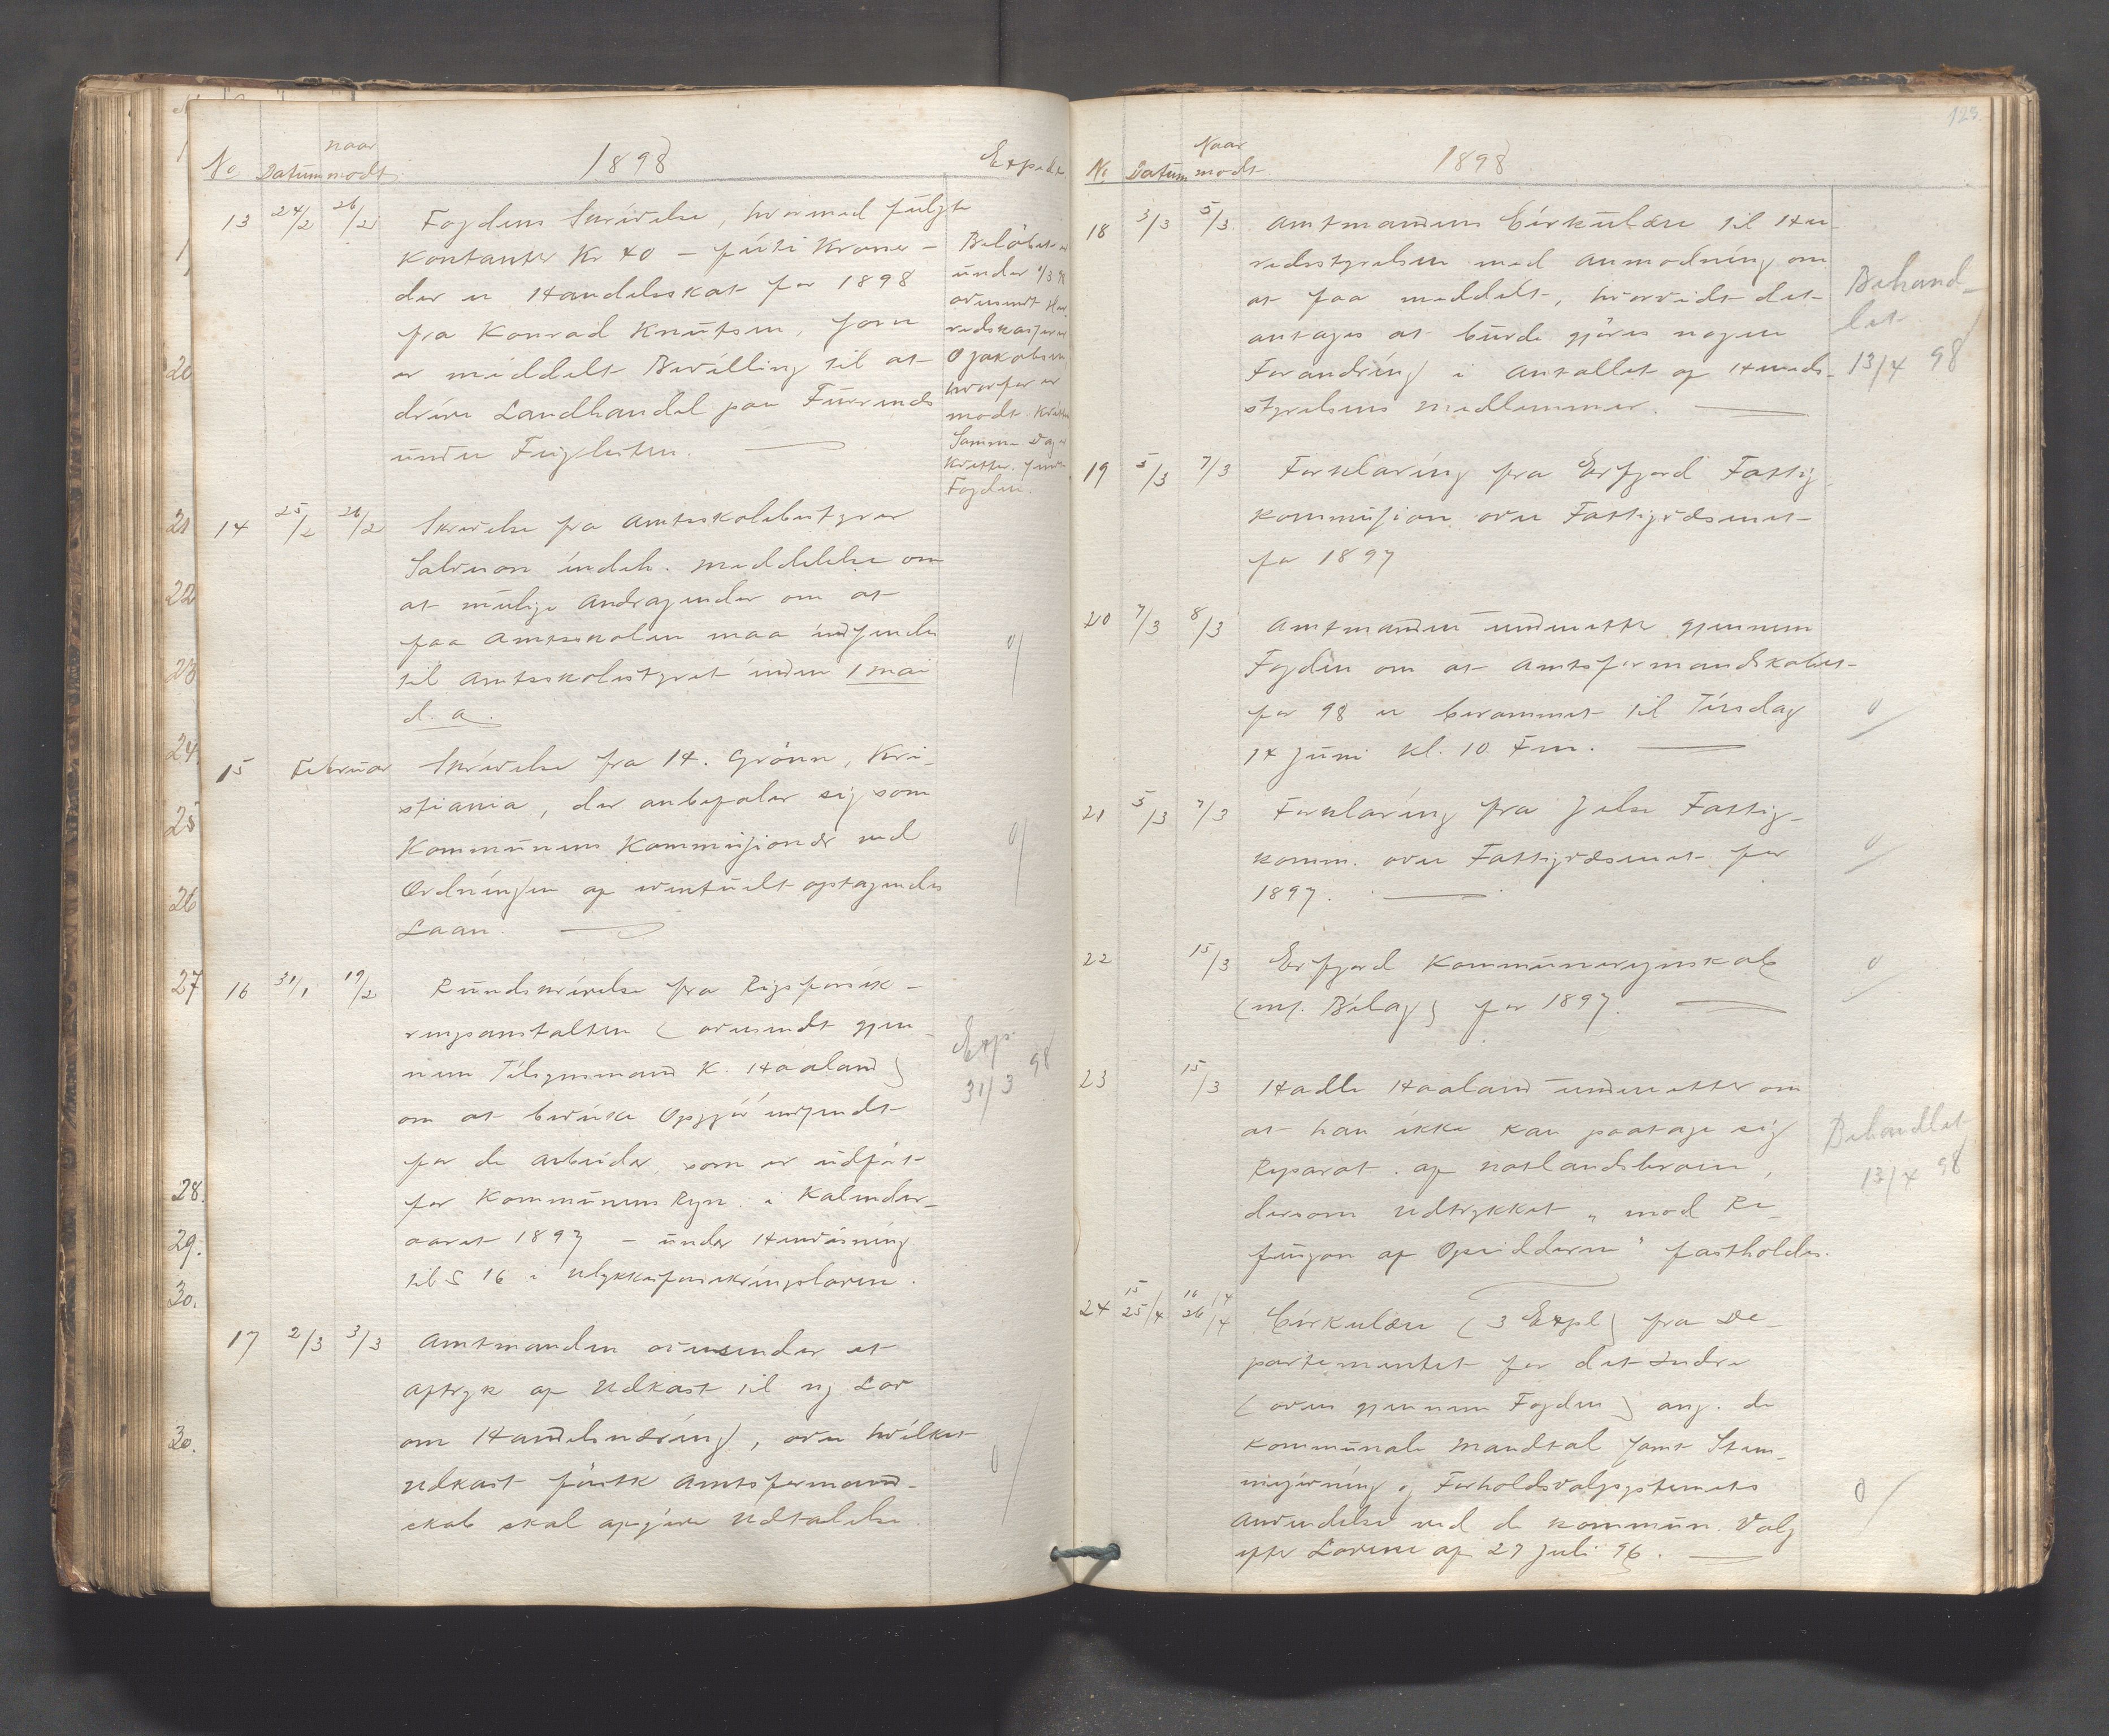 No Datum naar modt. 1898 Exped.
13 24/2 26/2 Fogdens Skrivelse, hvormed fulgte
kontanter Kr 40 – förti Kroner –
der er Handelsskat for 1898
fra Konrad Knutsen, som
er meddelt Bevilling til at
drive Landhandel paa
under
Belöbet er
under 1/3 98
oversendt Her-
redskasserer
O Jakobsen
hvorfor er
modt. Kvitt.
Samme Dag
Kvitter. sendt
Fogden.
14 25/2 26/2 Skrivelse fra Amtsskolebestyrer
indeh. Meddelelse om
at mulige Andragender om at
faa Amtsskolen maa indsendes
til Amtsskolestyret inden 1 Mai
d. a.
0/
15 Februar Skrivelse fra H. Grönn, Kri-
stiania, der anbefaler sig som
Kommunens Kommisjonær ved
Ordningen af eventuelt optagendes
Laan.
0/
16 31/1 19/2 Rundskrivelse fra Rigsforsik-
ringsanstalten (oversendt gjen-
nem Tilsynsmand K. Haaland)
om at bevirke Opgjör indsendt
for de Arbeider, som er udfört
for Kommunens Regn. i Kalender-
aaret 1897 – under Henvisning
til § 16 i Ulykkesforsikringsloven.
Exp.
31/3 98
17 2/3 3/3 Amtmanden oversender et
Aftryk af Udkast til ny Lov
om Handelsnæring, over hvilket
Udkast förstk. Amtsformand-
skab skal afgive Udtalelse.
0/
123
No Datum Naar modt 1898
18 3/3 5/3 Amtmandens Cirkulære til Her-
redsstyrelsen med Anmodning om
at faa meddelt, hvorvidt det
antages at burde gjöres nogen
Forandring i Antallet af Herreds-
styrelsens Medlemmer.
Behand-
let
13/4 98
19 5/3 7/3 Forklaring fra Erfjord Fattig-
kommisjon over Fattigvæsenet
for 1897
20 7/3 8/3 Amtmanden underretter gjennem
Fogden om at Amtsformandskabet
for 98 er berammet til Tirsdag
14 Juni kl. 10 Fm.
0/
21 5/3 7/3 Forklaring fra Jelse Fattig-
komm. over Fattigvæsenet for
1897.
0/
22 15/3 Erfjord Kommuneregnskab
(m/. Bilag) for 1897.
0/
23 15/3 Hadle Haaland underretter om
at han ikke kan paatage sig
Reparat. af
dersom Udtrykket "mod Re-
fusjon af Opsidderne" fastholdes.
Behandlet
13/4 98
24 15 25/4 16/4 26/4 Cirkulære (3 Expl) fra De-
partementet for det Indre
(overs gjennem Fogden) ang. de
kommunale Mandtal samt Stem-
megivning og Forholdsvalgsystemets
Anvendelse ved de kommun. Valg
efter Lovene af 27 Juli 96.
0/
20
21
22
23
24.
25
26
27
28.
29.
30.
30.